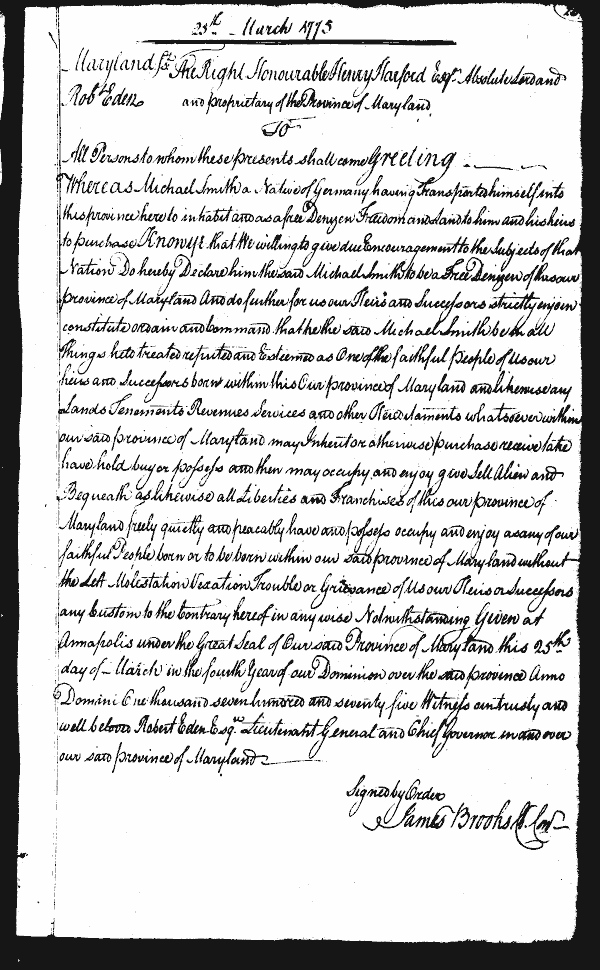 25th March 1775
Maryland ss. The Right Honourable Henry Harford Esqr. Absolute Lord and
Robt Eden and proprietary of the Province of Maryland
To
All Persons to whom these presents shall come Greeting
Whereas Michael Smith a Native of Germany having Transported himself into
this province here to inhabit and as a free Denizen Freedom and Land to him and his heirs
to purchase Know ye that We willing to give due Encouragement to the Subjects of that
Nation Do hereby Declare him the said Michael Smith to be a Free Denizen of this our
province of Maryland And do further for us our Heirs and Successors strictly enjoin
constitute ordain and command that he the said Michael Smith be in all
things held treated reputed and Esteemed as One of the faithful people of Us our
heirs and Successors born within this Our province of Maryland and likewise any
Lands Tenements Revenues Services and other Hereditaments whatsoever within
our said province of Maryland may Inherit or otherwise purchase receive take
have hold buy or possess and them may occupy and enjoy give Sell Alien and
Bequeath as likewise all Liberties and Franchises of this our province of
Maryland freely quietly and peacably have and possess occupy and enjoy as any of our
faithful People born or to be born within our said province of Maryland without
the Lett Molestation Vexation Trouble or Grievance of Us our Heirs or Successors
any Custom to the Contrary hereof in any wise Notwithstanding Given at
Annapolis under the Great Seal of Our said Province of Maryland this 25th
day of March in the fourth Year of our Dominion over the said province Anno
Domini One thousand seven hundred and seventy five Witness our trusty and
well beloved Robert Eden Esqr. Lieutenant General and Chief Governor in and over
our said province of Maryland
Signed by Order
James Brooks